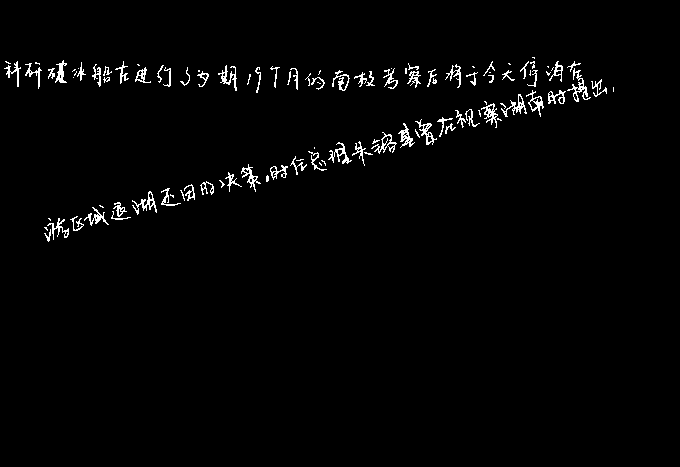 科研破冰船在进行了为期19个月的南极考察后将于今天停泊在
游区域退湖还田的决策。时任总理朱镕基曾在视察湖南时提出，